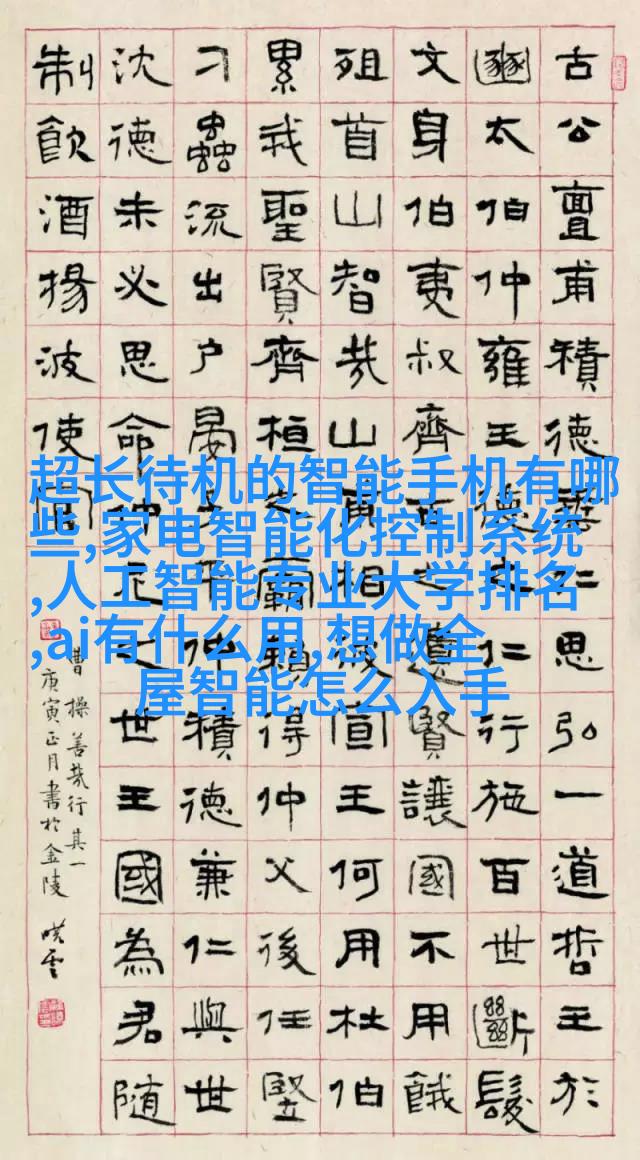 古公亶甫積德垂仁思弘一道哲王於
豳太伯仲雍王德之仁行施百世斷髮
文身伯夷叔齊古之遺賢讓國不用餓
殂首山智哉山甫相彼宣王何用杜伯
累我聖賢齊桓之霸賴得仲父後任豎
刁蟲流出戶晏子平仲積德兼仁與世
沈德未必思命仲尼之世王國為君隨
制飲酒揚波使官
曹操善哉行其一
庚寅正月書於金陵
超长待机的智能手机有哪
些,家电智能化控制系统
,人工智能专业大学排名
,ai有什么用,想做全
屋智能怎么入手